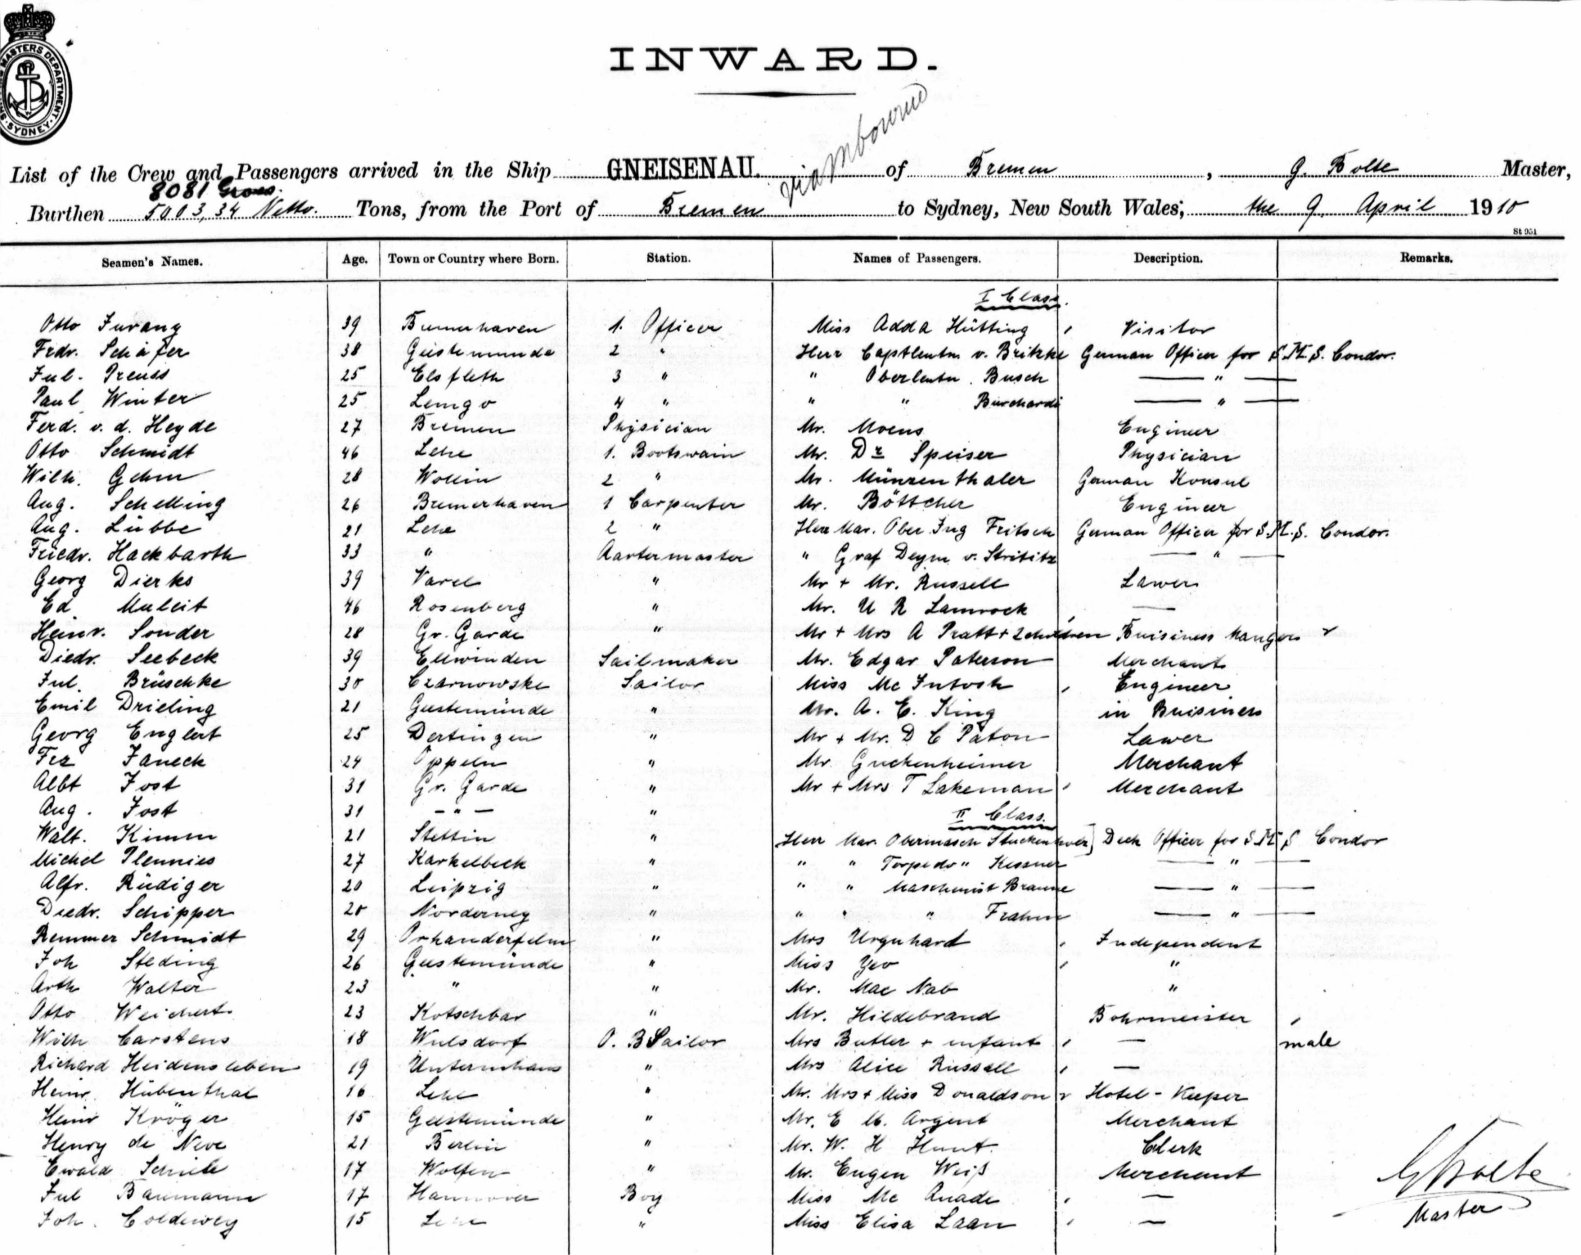 INWARD.
SHIPPING MASTERS DEPARTMENT. SYDNEY.
via Mbourne
List of the Crew and Passengers arrived in the Ship GNEISENAU. of Bremen, G. Bolte Master,
8081 Gross.
Burthen 5003,34 Netto. Tons, from the Port of Bremen to Sydney, New South Wales; the 9. April 1910
St 951
Seamen's Names. Age. Town or Country where Born. Station. Names of Passengers. Description. Remarks.
I Class.
Otto 39 Bremerhaven 1. Officer Miss Adda Hütting Visitor
Frdr. Schäfer 38 Geestemunde 2 " Herr Captlentn v. Britzke German Officer for S.M.S. Condor.
Jul. Preuss 25 Elsfleth 3 " " Oberleutn. Busch "
Paul Winter 25 Lemgo 4 " " " Burchardi "
Ferd. v. d. Heyde 27 Bremen Physician Mr. Moens Engineer
Otto Schmidt 46 Lehe 1. Bootswain Mr. Dr Speiser Physician
Wilh. Gehm 28 Wollin 2 " Mr. Münzenthaler German Konsul
Aug. Schelling 26 Bremerhaven 1 Carpenter Mr. Böttcher Engineer
Aug. Lübbe 21 Lehe 2 " Herr Mar. Ober Ing Fritsch German Officer for S.M.S. Condor.
Friedr. Hackbarth 33 " Aartermaster " Graf Deym v. Stritítz "
Georg Dierks 39 Varel " Mr + Mr. Russell Lawer
Ed Muleit 46 Rosenberg " Mr. U R Lamrock —
Heinr. Sonder 28 Gr. Garde " Mr + Mrs A Pratt + 2 children Buisiness Mangers
Diedr. Seebeck 39 Ellwinden Sailmaker Mr. Edgar Paterson Merchant
Jul. Brüschke 30 Czarnowske Sailor Miss Mc Intosh Engineer
Emil Drieling 21 Geestemünde " Mr. A. E. King in Buisiness
Georg Englert 25 Dertingen " Mr + Mr. D C Paton Lawer
Frz Janeck 24 Oppeln " Mr Guckenheimer Merchant
Albt Jost 31 Gr. Garde " Mr + Mrs T Lakeman Merchant
Aug. Jost 31 - " - "
II Class.
Walt. Kimm 21 Stettin " Herr Mar. Obermasch Stuckenhover Deck Officer for S.M.S Condor
Michel Plennies 27 Karkelbeck " " " Torpedo " Kessner "
Alfr. Rüdiger 20 Leipzig " " " Maschinist Braune "
Diedr. Schipper 20 Norderney " " " " Frahm "
Remmer Schmidt 29 " Mrs Urquhard Independent
Joh Steding 26 Geestemünde " Miss Yeo "
Arth Walter 23 " " Mr. Mac Nab "
Otto Weichert 23 Kotschbar " Mr. Hildebrand Bohrmeister
Wilh Carstens 18 Wulsdorf O. B Sailor Mrs Butler + infant — male
Richard Heidensleben 19 Unternhaus " Mrs Alice Russell —
Heinr. Hübenthal 16 Lehe " Mr. Mrs + Miss Donaldson Hotel-Keeper
Heinr Kröger 15 Geestemünde " Mr. E M. Argent Merchant
Henry de Neve 21 Berlin " Mr. W. H Hunt. Clerk
Ewald 17 Wolfen " Mr. Eugen Weiß Merchant
Jul Baumann 17 Hannover Boy Miss Mc Quade —
Joh. Coldewey 15 Lehe " Miss Elisa Laan —
G Bolte
Master